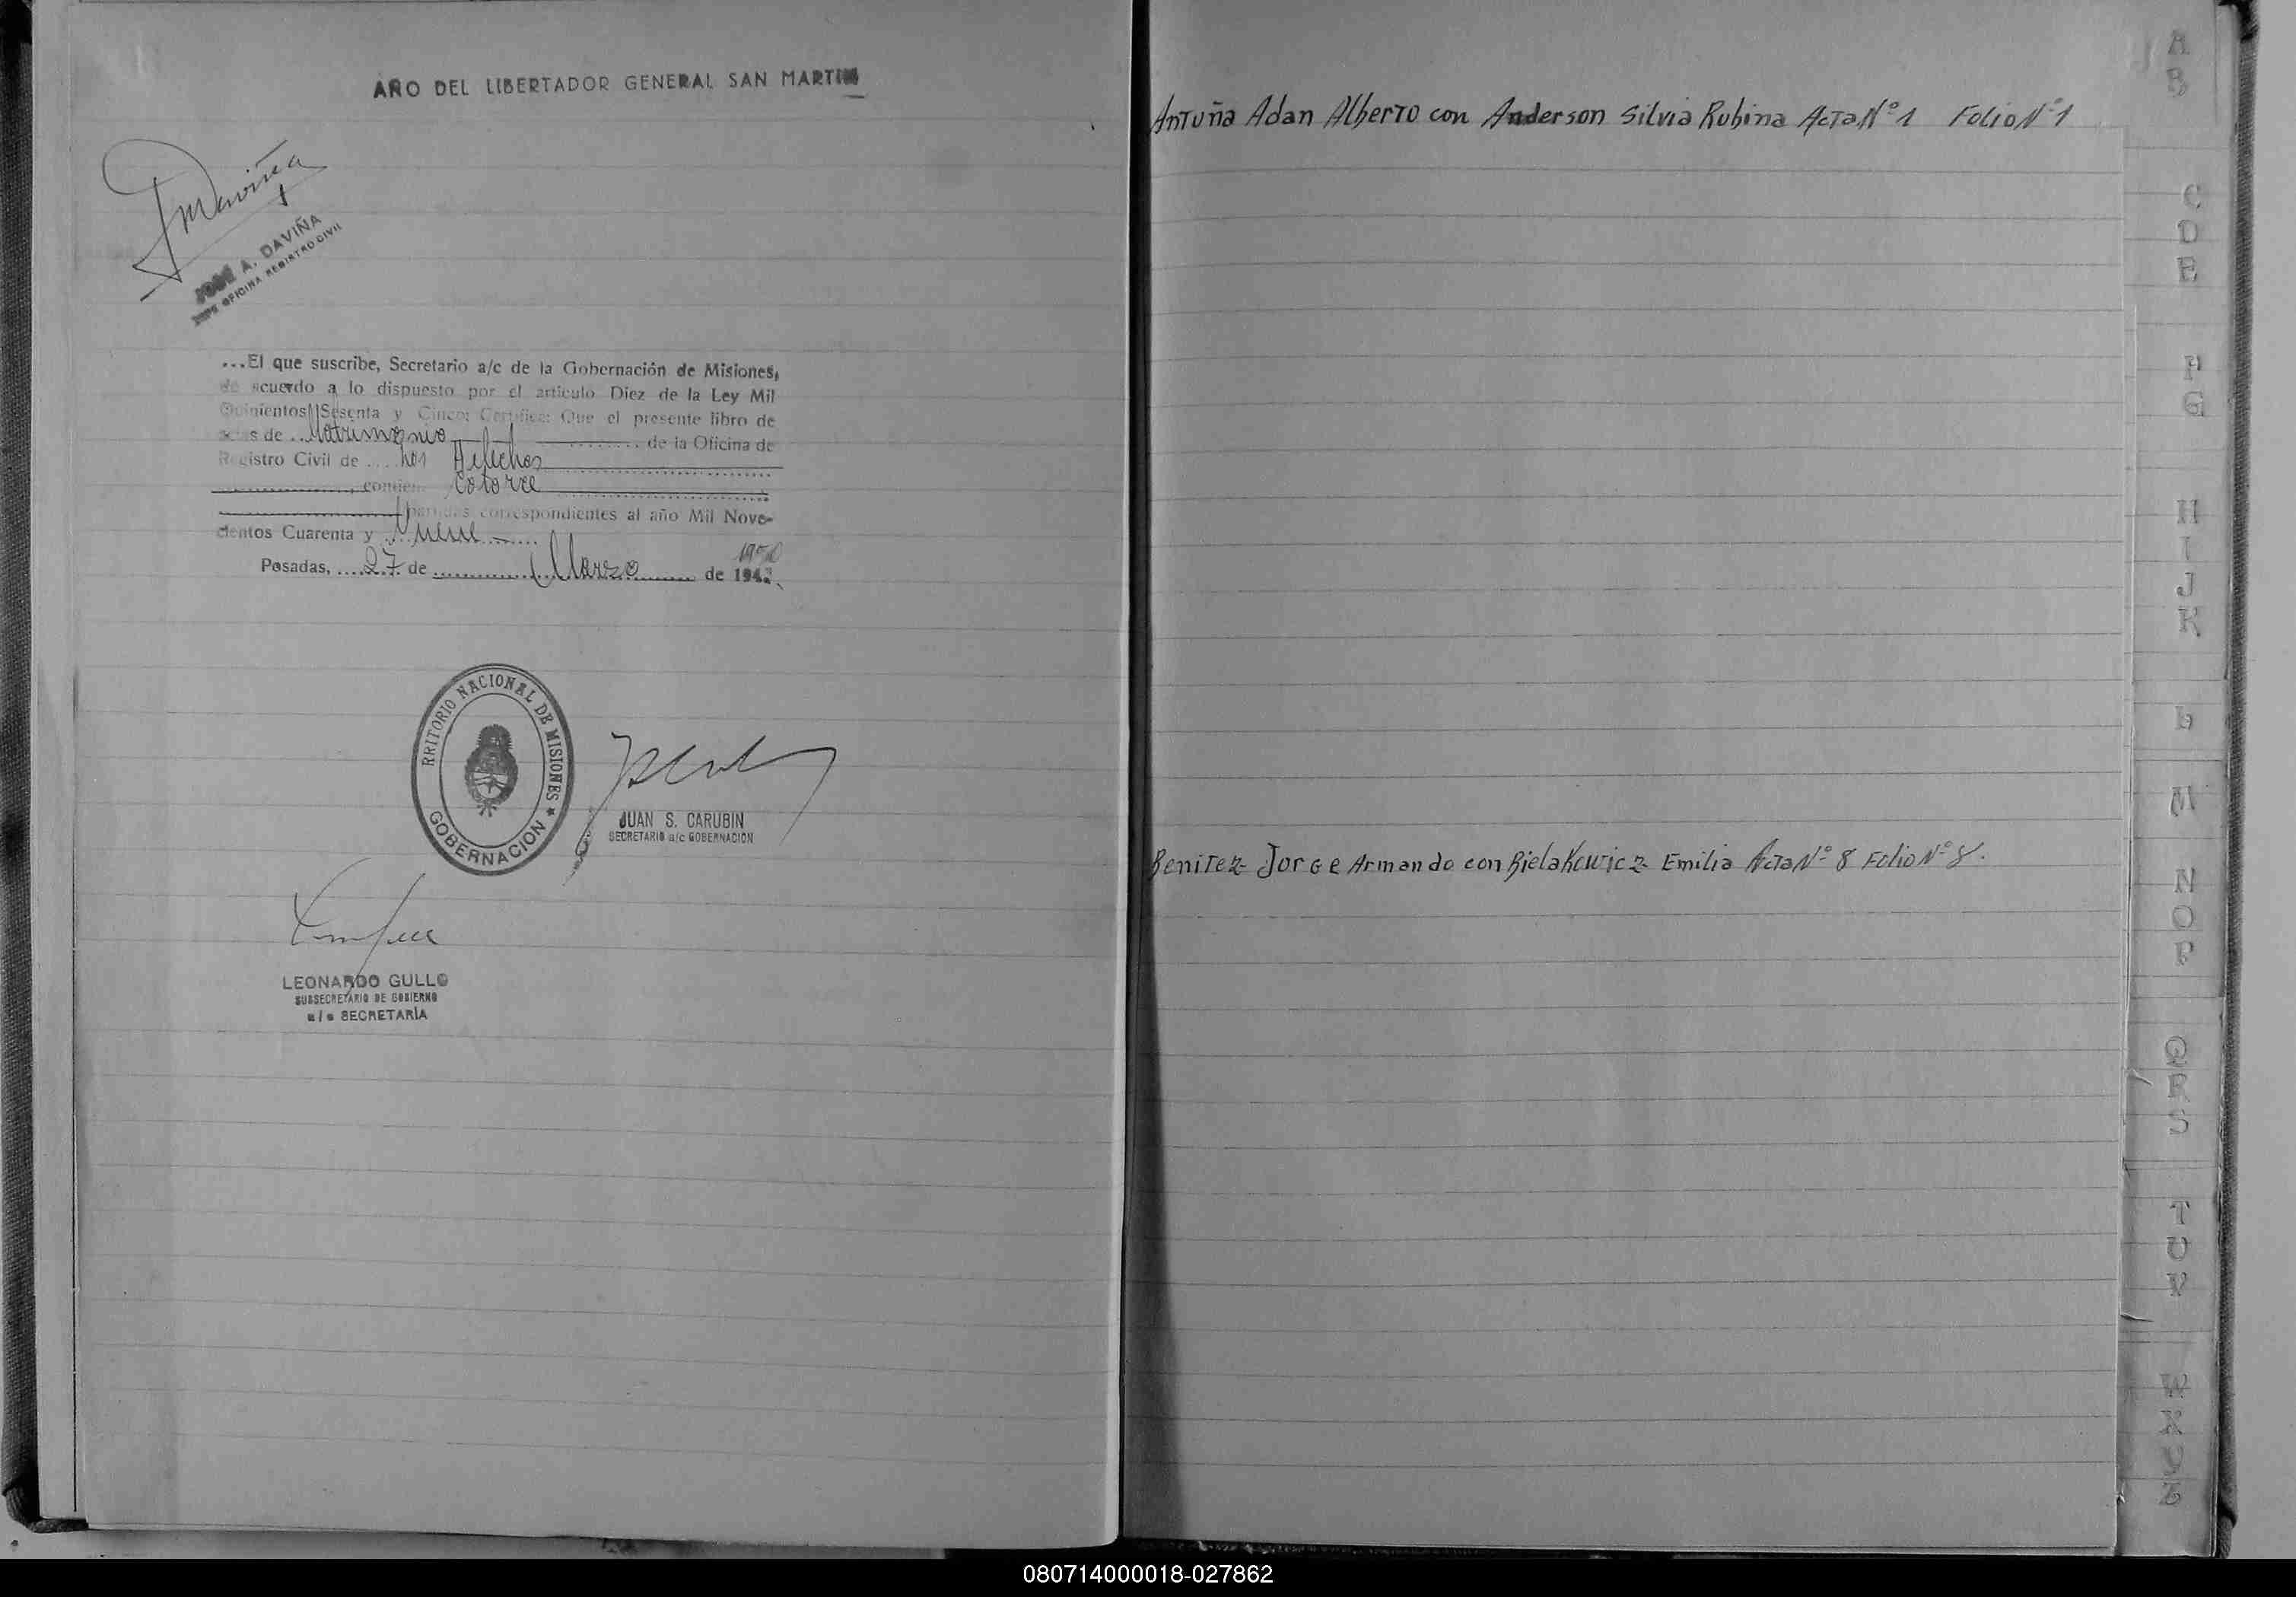 AÑO DEL LIBERTADOR GENERAL SAN MARTIN
JOSÉ A. DAVIÑA
JEFE OFICINA REGISTRO CIVIL
...El que suscribe, Secretario a/c de la Gobernación de Misiones,
de acuerdo a lo dispuesto por el artículo Diez de la Ley Mil
Quinientos Sesenta y Cinco; Certifica: Que el presente libro de
actas de Matrimonio de la Oficina de
Registro Civil de Los Helechos
contiene Catorce
partidas correspondientes al año Mil Nove-
cientos Cuarenta y Nueve
Posadas, 27 de Marzo de 194 1950
TERRITORIO NACIONAL DE MISIONES ★ GOBERNACION
JUAN S. CARUBIN
SECRETARIO a/c GOBERNACION
LEONARDO GULLO
SUBSECRETARIO DE GOBIERNO
a/c SECRETARÍA
Antuña Adan Alberto con Anderson Silvia Rubina Acta Nº 1 Folio Nº 1
Benitez Jorge Armando con Bielakewicz Emilia Acta Nº 8 Folio Nº 8.
A
B
C
D
E
F
G
H
I
J
K
L
M
N
O
P
Q
R
S
T
U
V
W
X
Y
Z
080714000018-027862